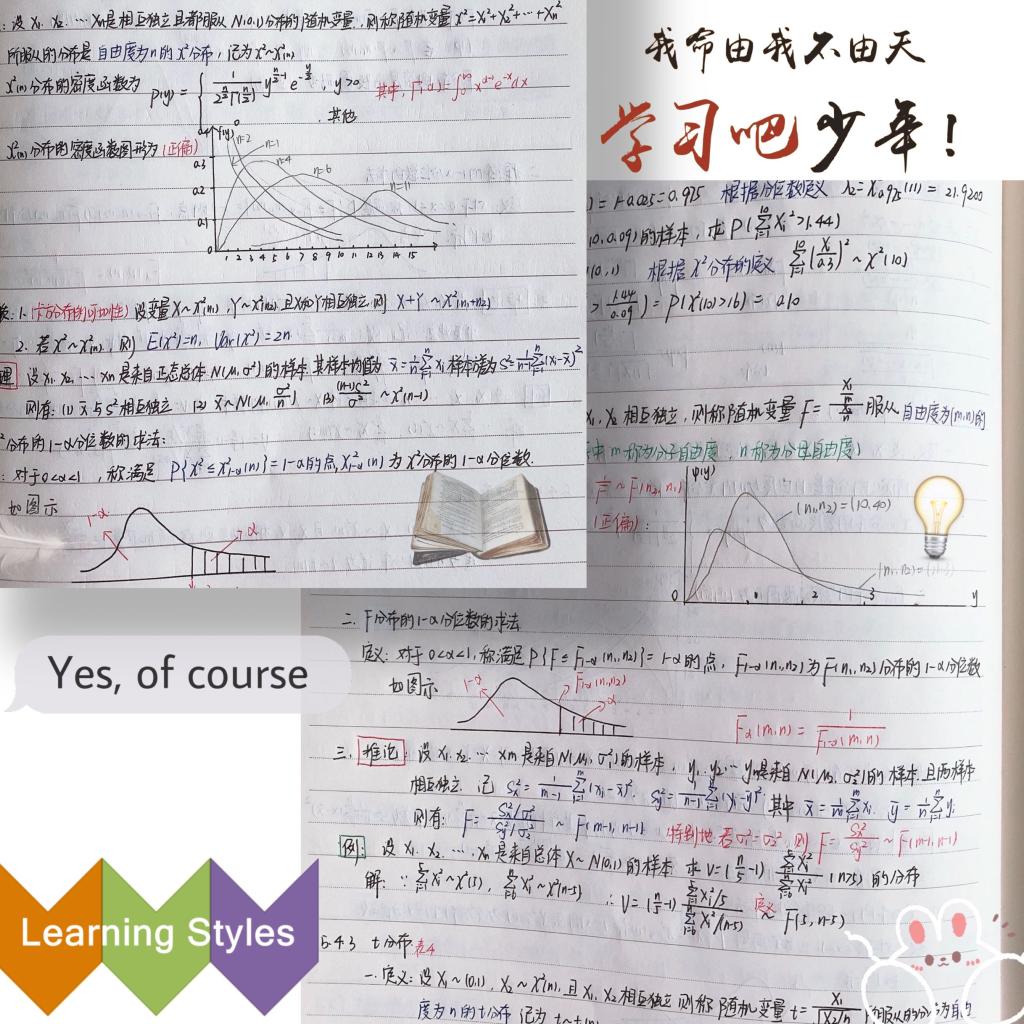 我命由我不由天
学习吧少年!
: 设 X₁, X₂, … Xn是相互独立且都服从 N(0,1)分布的随机变量, 则称随机变量 χ²=X₁²+X₂²+…+Xn²
所服从的分布是 自由度为n的χ²分布, 记为 χ²~χ²(n)
χ²(n)分布的密度函数为 p(y)= { 1/(2^(n/2)Γ(n/2)) y^(n/2-1) e^(-y/2), y>0 其中, Γ(α)=∫₀^∞ x^(α-1)e^(-x)dx
0 . 其他
χ²(n)分布的密度函数图形为 (正偏)
f(y)
n=2
n=1
n=4
n=6
n=11
0.3
0.2
0.1
0
1 2 3 4 5 6 7 8 9 10 11 12 13 14 15
1. (卡方分布的可加性) 设变量X~χ²(n₁), Y~χ²(n₂) 且X和Y相互独立, 则 X+Y ~χ²(n₁+n₂)
2. 若χ²~χ²(n), 则 E(χ²)=n, Var(χ²)=2n
理 设 X₁, X₂, … Xn 是来自正态总体 N(μ, σ²)的样本, 其样本均值为 x̄=1/n Σxi 样本方差为 S²=1/(n-1) Σ(xi-x̄)²
则有: (1) x̄与S²相互独立 (2) x̄~N(μ, σ²/n) (3) (n-1)S²/σ² ~χ²(n-1)
分布的1-α分位数的求法:
: 对于0<α<1, 称满足 P{χ²≤χ²₁₋α(n)}=1-α的点χ²₁₋α(n) 为 χ²分布的1-α分位数.
如图示
1-α
α
)=1-0.025=0.975 根据分位数定义 λ₂=χ²0.975(11)=21.9200
(0, 0.09)的样本, 求 P(Σ Xi²>1.44)
(0,1) 根据χ²分布的定义 Σ(Xi/0.3)²~χ²(10)
> 1.44/0.09)=P(χ²(10)>16)=0.10
X₁, X₂ 相互独立, 则称随机变量 F= (X₁/m)/(X₂/n) 服从 自由度为(m,n)的
中 m 称为分子自由度, n 称为分母自由度)
1/F ~ F(n₂, n₁)
(正偏):
φ(y)
(n₁,n₂)=(10,40)
0
2
3
y
二. F分布的1-α分位数的求法
定义: 对于0<α<1, 称满足 P{F≤F₁₋α(n₁,n₂)}=1-α的点, F₁₋α(n₁,n₂)为F(n₁,n₂)分布的1-α分位数
如图示
1-α
F₁₋α(n₁,n₂)
α
Fα(m,n)= 1/F₁₋α(m,n)
三. 推论: 设 X₁, X₂, … Xm 是来自N(μ₁, σ₁²)的样本, y₁, y₂, … yn是来自N(μ₂, σ₂²)的样本, 且两样本
相互独立, 记 Sx²=1/(m-1) Σ(xi-x̄)², Sy²=1/(n-1) Σ(yi-ȳ)² 其中 x̄=1/m Σxi, ȳ=1/n Σyi
则有: F= (Sx²/σ₁²)/(Sy²/σ₂²) ~ F(m-1, n-1) 特别地, 若σ₁²=σ₂², 则 F= Sx²/Sy² ~F(m-1,n-1)
例: 设 X₁, X₂, …, Xn 是来自总体X~N(0,1)的样本, 求 V=(n/5-1) ΣXi²/ΣXi² (n>5) 的分布
解: ∵ ΣXi²~χ²(5), ΣXi²~χ²(n-5) ∴ V=(n/5-1) (ΣXi²/5)/(ΣXi²/(n-5)) 定义 ~ F(5, n-5)
5.4.3 t分布 表4
一. 定义: 设 X₁~(0,1), X₂~χ²(n), 且 X₁, X₂ 相互独立 则称随机变量 t= X₁/√(X₂/n) 所服从的分布为自由
度为n的t分布 记为 t~t(n)
Yes, of course
Learning Styles